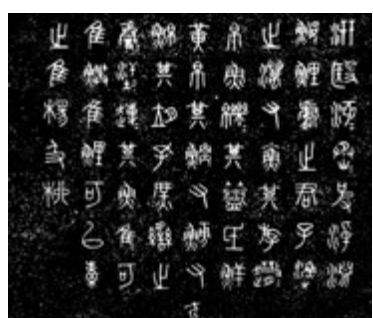 汧殹沔丞彼淖淵
鰋鯉處之君子漁
之澫又鯊其斿
帛魚其氐鮮
黃帛其鯾又又
其孔庶之
其魚隹可
隹鱮隹鯉可㠯橐
之隹楊及柳